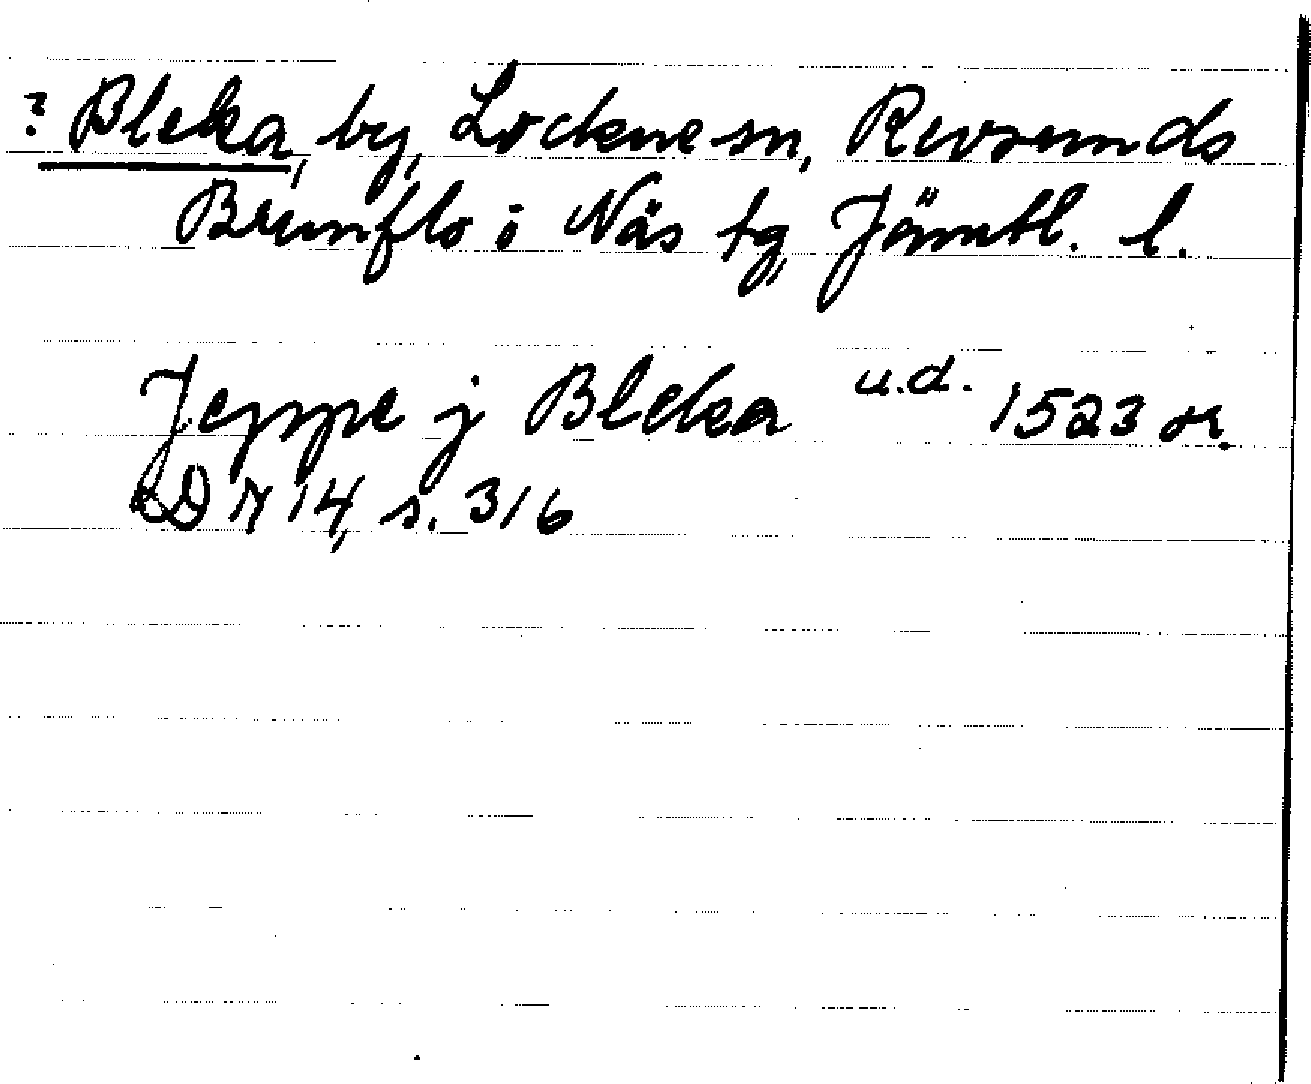 ? Bleka, by, Lockne sn, Revsunds
Brunflo o Näs tg, Jämtl. l.
Jeppe j Bleka u.d. 1523 or.
DN 14, s. 316